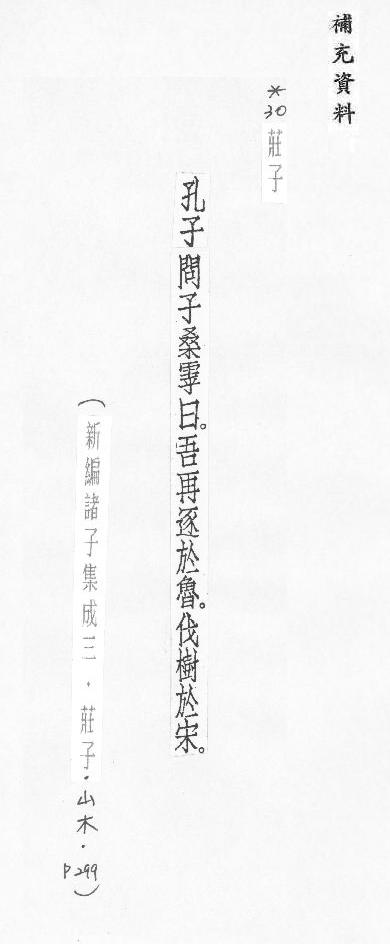 補充資料
*30 莊子
孔子問子桑雽曰。吾再逐於魯。伐樹於宋。
(新編諸子集成三・莊子・山木・P299)